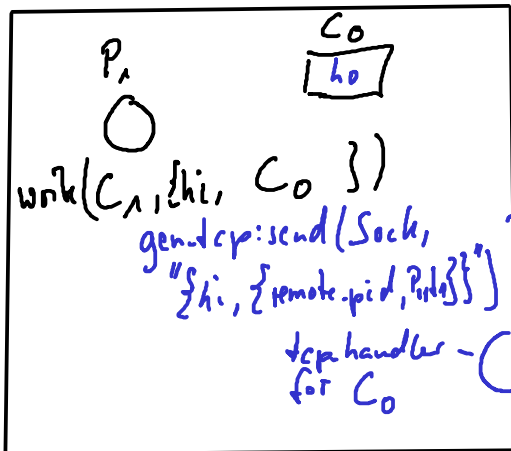 P₁
C₀
h₀
work(C₁,{hi, C₀ })
gen_tcp:send(Sock,
"{hi, {remote_pid,
tcp handler -
for C₀